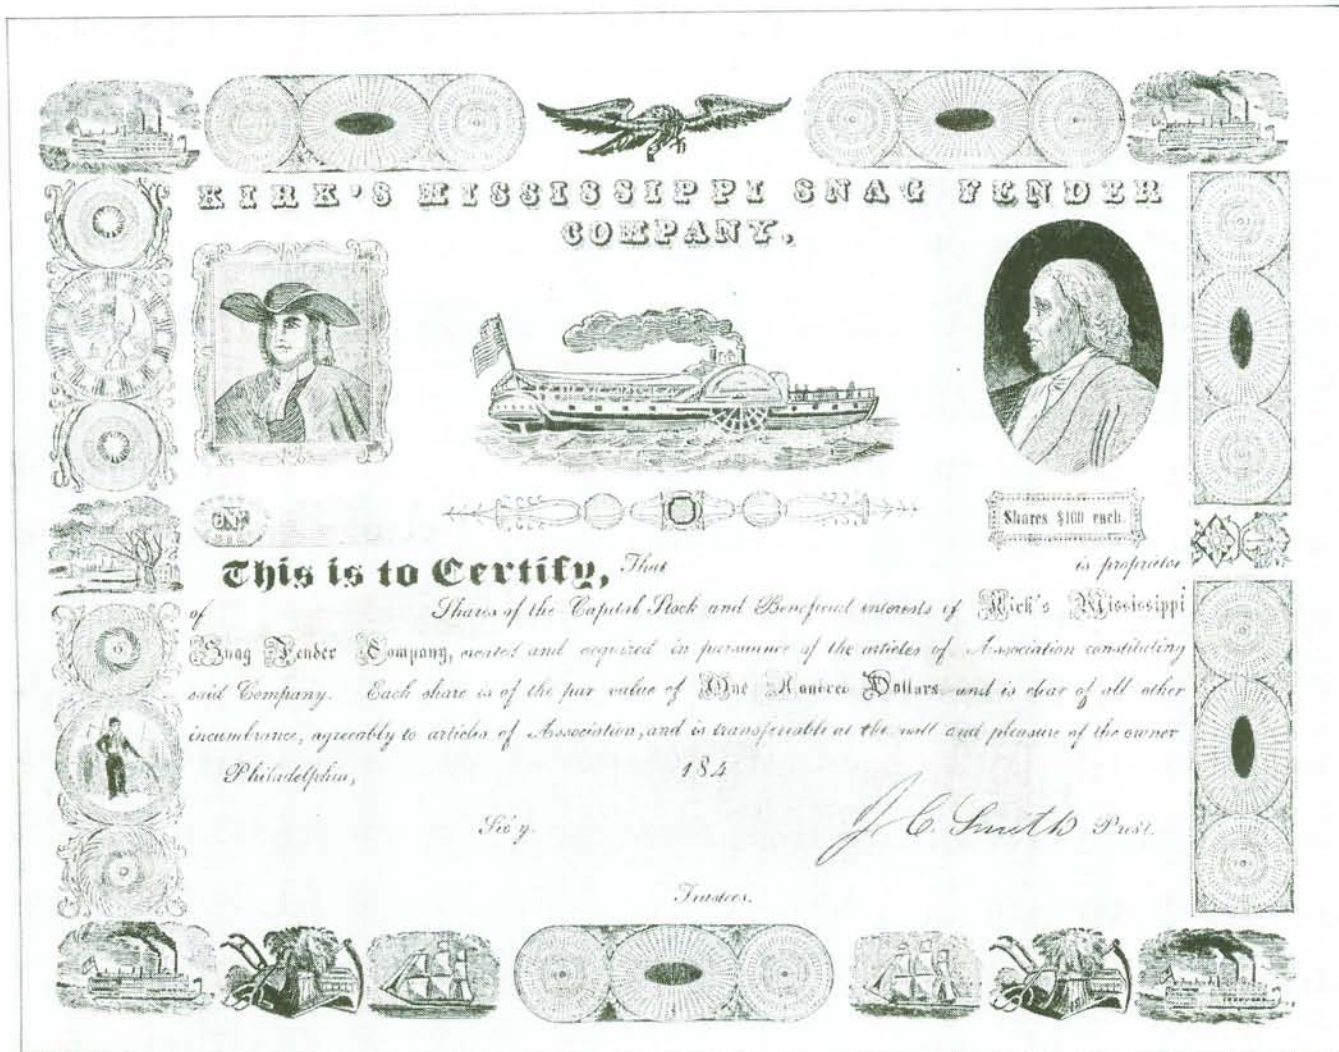 KIRK'S MISSISSIPPI SNAG FENDER
COMPANY,
No
Shares $100 each.
This is to Certify, That is proprietor
of Shares of the Capital Stock and Beneficial interests of Kirk's Mississippi
Snag Fender Company, created and acquired in pursuance of the articles of Association constituting
said Company. Each share is of the par value of One Hundred Dollars and is clear of all other
incumbrance, agreeably to articles of Association, and is transferable at the will and pleasure of the owner
Philadelphia, 184
Sec'y. J C. Smith Prest.
Trustees.